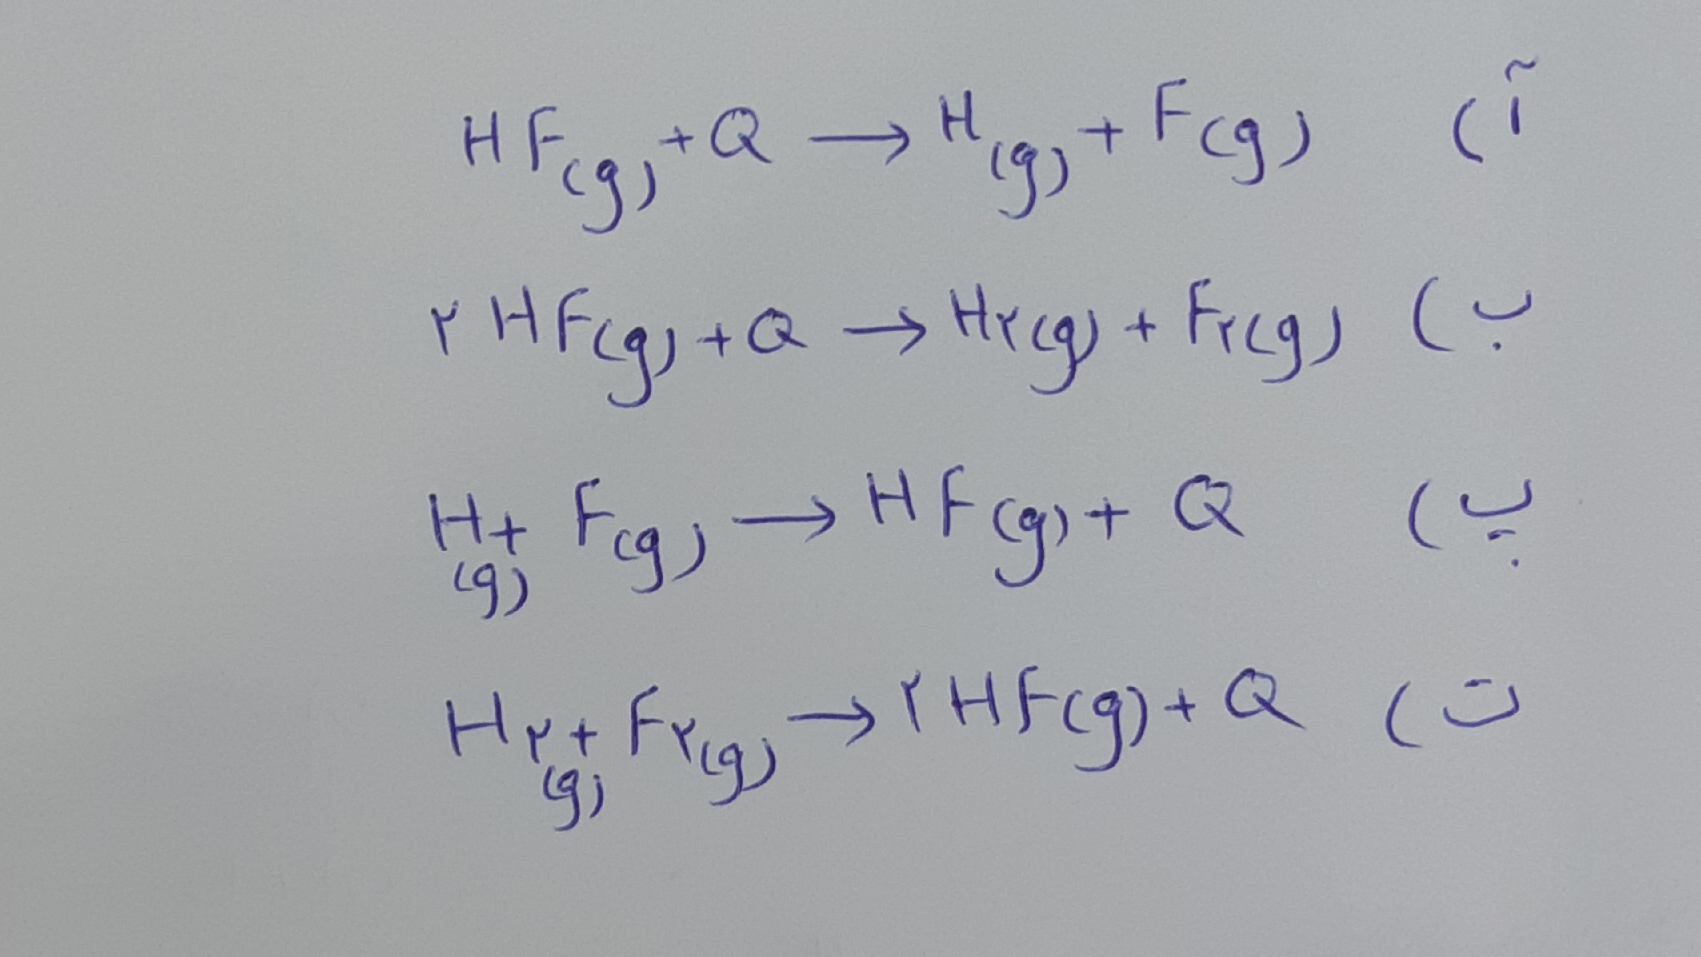 آ) HF(g) + Q → H(g) + F(g)
ب) ۲HF(g) + Q → H۲(g) + F۲(g)
پ) H(g) + F(g) → HF(g) + Q
ت) H۲(g) + F۲(g) → ۲HF(g) + Q